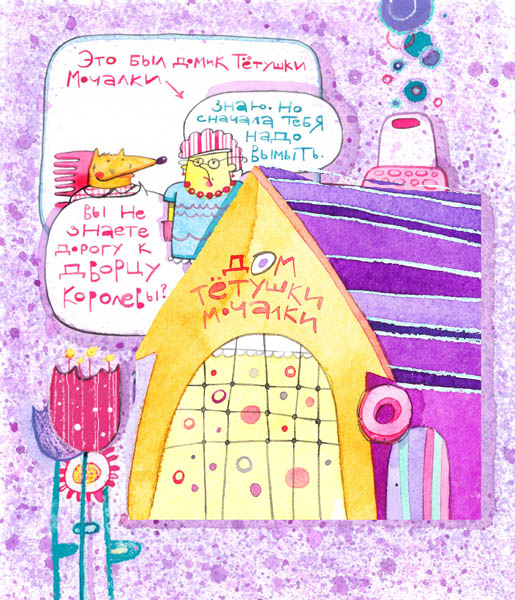 Это был домик Тётушки
Мочалки
Вы не
знаете
дорогу к
дворцу
королевы?
Знаю. Но
сначала тебя
надо
вымыть.
Дом
тётушки
мочалки